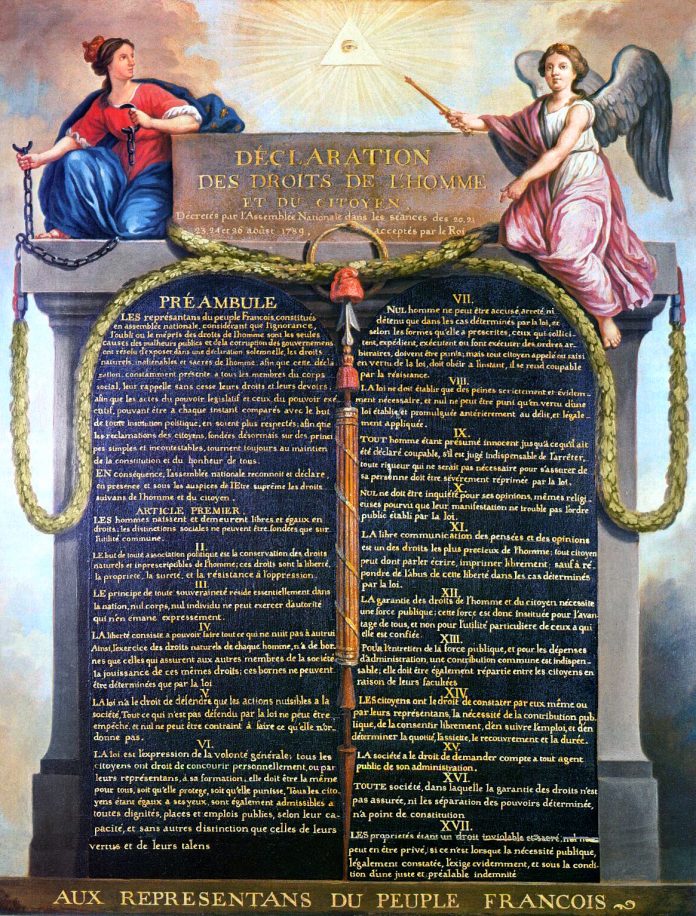 DÉCLARATION
DES DROITS DE L'HOMME
ET DU CITOYEN,
Décretés par l'Assemblée Nationale dans les séances des 20, 21
23, 24 et 26 août 1789, acceptés par le Roi
PRÉAMBULE
LES représentans du peuple François, constitués
en assemblée nationale, considérant que l'ignorance,
l'oubli ou le mépris des droits de l'homme sont les seules
causes des malheurs publics et de la corruption des gouvernemens
ont résolu d'exposer dans une déclaration solemnelle, les droits
naturels, inaliénables et sacrés de l'homme; afin que cette décla
ration, constamment présente a tous les membres du corps
social, leur rappelle sans cesse leurs droits et leurs devoirs,
afin que les actes du pouvoir législatif et ceux, du pouvoir exé
cutif, pouvant être a chaque instant comparés avec le but
de toute institution politique, en soient plus respectés; afin que
les reclamations des citoyens, fondées désormais sur des princi
pes simples et incontestables, tournent toujours au maintien
de la constitution et du bonheur de tous.
EN conséquence, l'assemblée nationale reconnoit et déclare,
en presence et sous les auspices de l'Etre suprême les droits
suivans de l'homme et du citoyen.
ARTICLE PREMIER.
LES hommes naissent et demeurent libres et égaux en
droits; les distinctions sociales ne peuvent être fondées que sur
l'utilité commune.
II.
LE but de toute association politique est la conservation des droits
naturels et inprescriptibles de l'homme; ces droits sont la liberté,
la proprieté, la sureté, et la résistance à l'oppression.
III.
LE principe de toute souveraineté réside essentiellement dans
la nation, nul corps, nul individu ne peut exercer d'autorité
qui n'en émane expressement.
IV.
LA liberté consiste a pouvoir faire tout ce qui ne nuit pas à autrui
Ainsi, l'exercice des droits naturels de chaque homme, n'a de bor-
nes que celles qui assurent aux autres membres de la société
la jouissance de ces mêmes droits; ces bornes ne peuvent
être déterminées que par la loi
V.
LA loi n'a le droit de défendre que les actions nuisibles a la
société, Tout ce qui n'est pas défendu par la loi ne peut être
empêché, et nul ne peut être contraint à faire ce qu'elle n'or-
donne pas.
VI.
LA loi est l'expression de la volonté générale; tous les
citoyens ont droit de concourir personnellement, ou par
leurs représentans, à sa formation; elle doit être la même
pour tous, soit qu'elle protege, soit qu'elle punisse, Tous les cito
yens étant égaux à ses yeux, sont également admissibles a
toutes dignités, places et emplois publics, selon leur ca
pacité, et sans autres distinction que celles de leurs
vertus et de leurs talens
VII.
NUL homme ne peut être accusé, arreté ni
détenu que dans les cas déterminés par la loi, et
selon les formes qu'elle a prescrites, ceux qui sollici-
tent, expédient, exécutent ou font exécuter des ordres ar-
bitraires, doivent être punis; mais tout citoyen appelé ou saisi
en vertu de la loi, doit obéir a l'instant, il se rend coupable
par la résistance.
VIII.
LA loi ne doit établir que des peines strictement et évidem-
ment nécessaire, et nul ne peut être puni qu'en vertu d'une
loi établie, et promulguée antérierement au délit, et légale-
ment appliquée.
IX.
TOUT homme étant présumé innocent jusqu'à ce qu'il ait
été déclaré coupable, s'il est jugé indispensable de l'arrêter,
toute rigueur qui ne serait pas nécessaire pour s'assurer de
sa personne doit être sévèrement réprimée par la loi.
X.
NUL ne doit être inquiété pour ses opinions, mêmes religi-
euses pourvu que leur manifestation ne trouble pas l'ordre
public établi par la loi.
XI.
LA libre communication des pensées et des opinions
est un des droits les plus precieux de l'homme; tout citoyen
peut dont parler écrire, imprimer librement; sauf à ré-
pondre de l'abus de cette liberté dans les cas déterminés
par la loi.
XII.
LA garantie des droits de l'homme et du citoyen nécessite
une force publique; cette force est donc instituée pour l'avan-
tage de tous, et non pour l'utilité particuliere de ceux a qui
elle est confiée.
XIII.
POUR l'entretien de la force publique, et pour les dépenses
d'administration, une contribution commune est indispen-
sable; elle doit être également répartie entre les citoyens en
raison de leurs facultées
XIV.
LES citoyens ont le droit de constater par eux même ou
par leurs representans, la nécessité de la contribution pub-
lique, de la consentir librement, d'en suivre l'emploi, et d'en
déterminer la quotité, l'assiette, le recouvrement et la durée.
XV.
LA société a le droit de demander compte a tout agent
public de son administration.
XVI.
TOUTE société, dans laquelle la garantie des droits n'est
pas assurée, ni les séparation des pouvoirs déterminée,
n'a point de constitution
XVII.
LES proprietés étant un droit inviolable et sacré, nul ne
peut en être privé, si ce n'est lorsque la nécessité publique,
légalement constatée, l'exige evidemment, et sous la condi-
tion d'une juste et préalable indemnité
AUX REPRESENTANS DU PEUPLE FRANCOIS